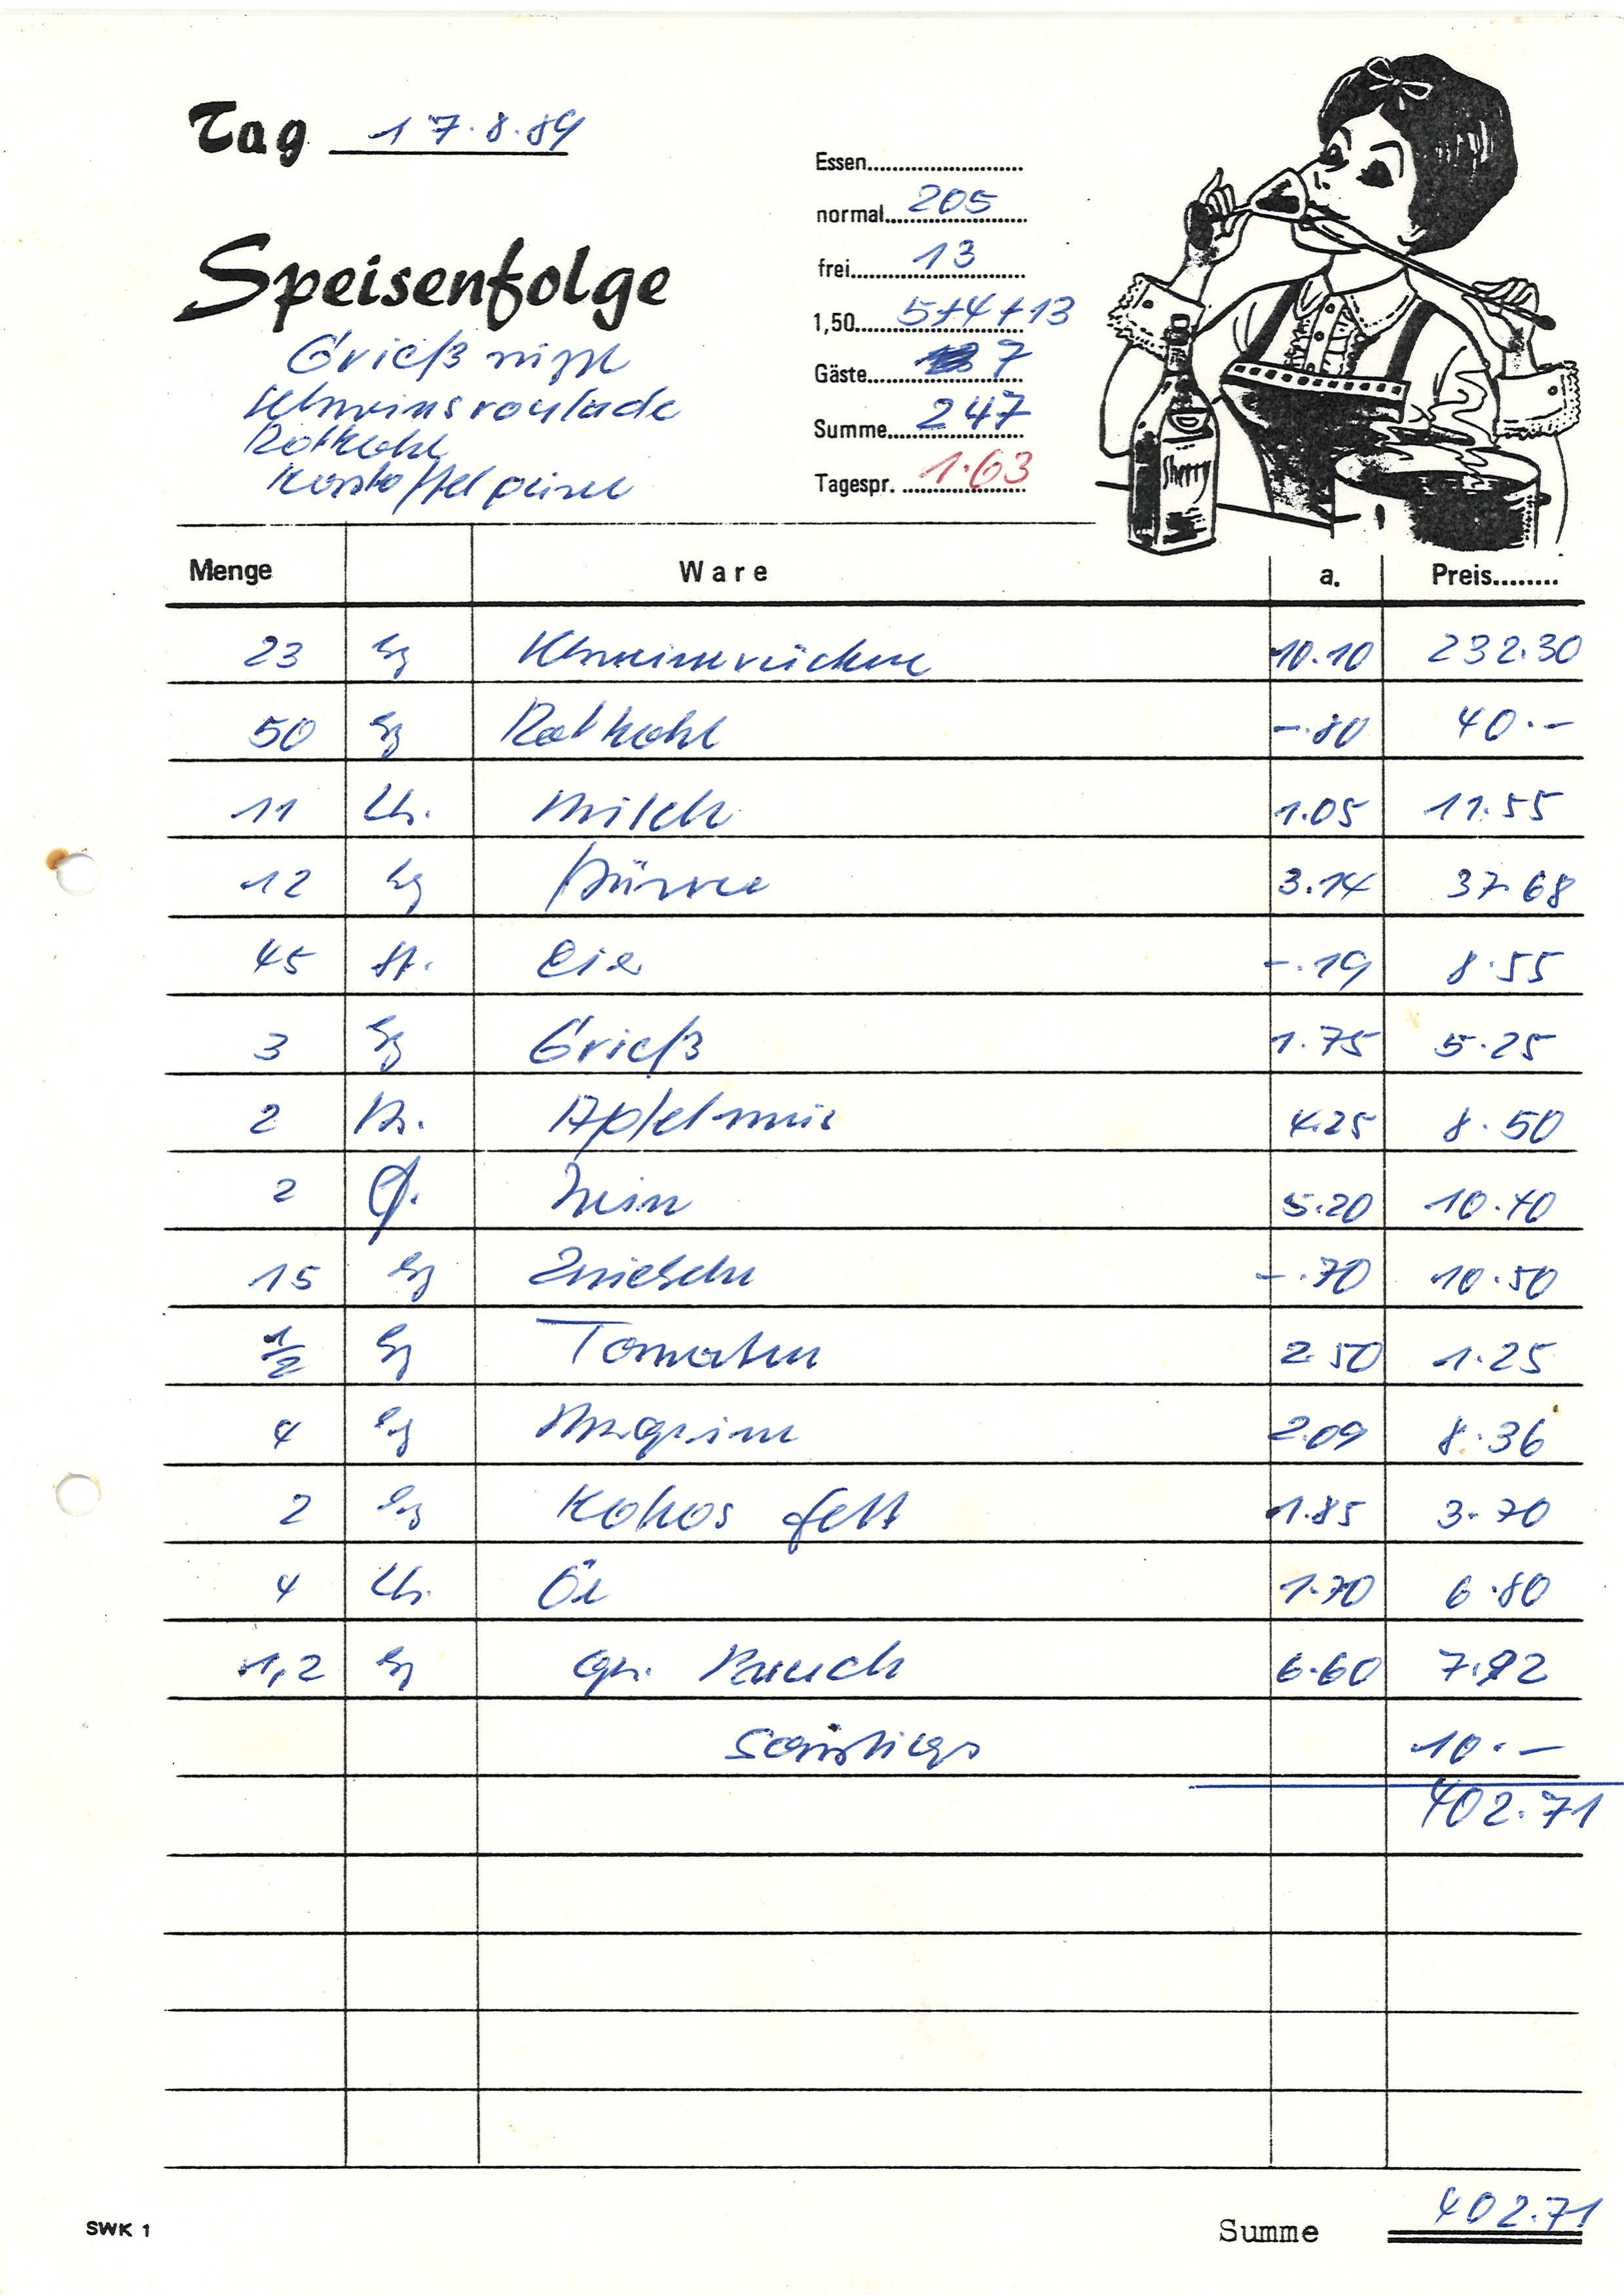 Tag 17.8.89
Speisenfolge
Grießsuppe
Schweinsroulade
Rotkohl
Kartoffelpüree
Essen
normal 205
frei 13
1,50 5+4+13
Gäste 7
Summe 247
Tagespr. 1.63
Sherry
Menge Ware a. Preis
23 kg Schweinerücken 10.10 232.30
50 kg Rotkohl -.80 40.-
11 Ltr. Milch 1.05 11.55
12 kg Püree 3.14 37.68
45 St. Eier -.19 8.55
3 kg Grieß 1.75 5.25
2 Apfelmus 4.25 8.50
2 Fl. Wein 5.20 10.40
15 kg Zwiebeln -.70 10.50
1/2 kg Tomaten 2.50 1.25
4 kg Margarine 2.09 8.36
2 kg Kokos fett 1.85 3.70
4 Ltr. Öl 1.70 6.80
1,2 kg 6.60 7.92
Sonstiges 10.-
402.71
SWK 1 Summe 402.71